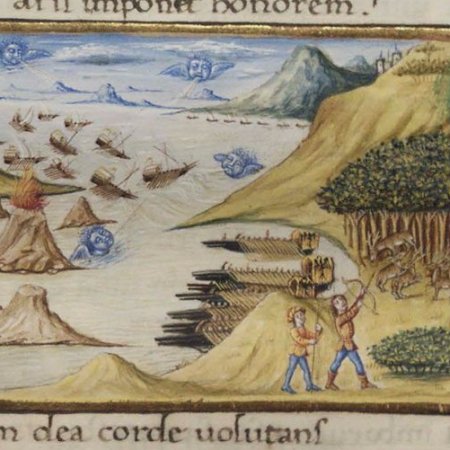 aris imponet honorem.
m dea corde uolutans